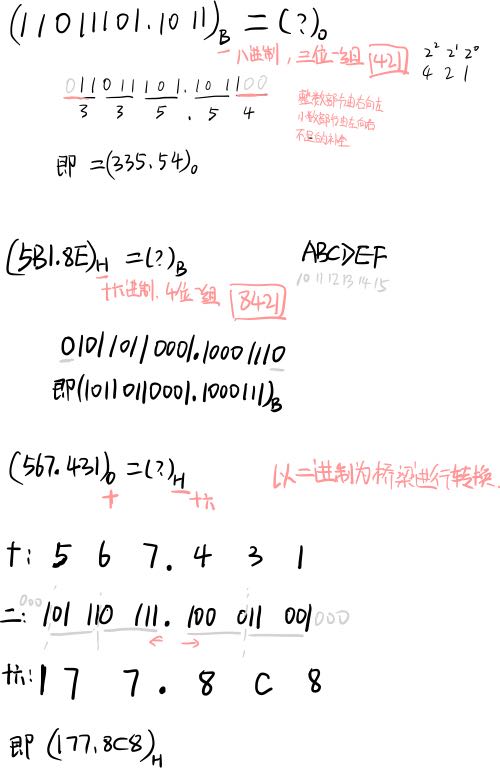 (11011101.1011)B = (?)O
八进制，三位一组 421
2² 2¹ 2⁰
4 2 1
011 011 101.101 100
3 3 5 . 5 4
整数部分由右向左
小数部分由左向右
不足的补全
即 =(335.54)O
(5B1.8E)H =(?)B
ABCDEF
10 11 12 13 14 15
十六进制，4位一组 8421
010110110001.10001110
即(10110110001.1000111)B
(567.431)O =(?)H
十 十六
以二进制为桥梁进行转换.
十: 5 6 7 . 4 3 1
二: 000 101 110 111 . 100 011 001 000
← →
十六: 1 7 7 . 8 C 8
即 (177.8C8)H